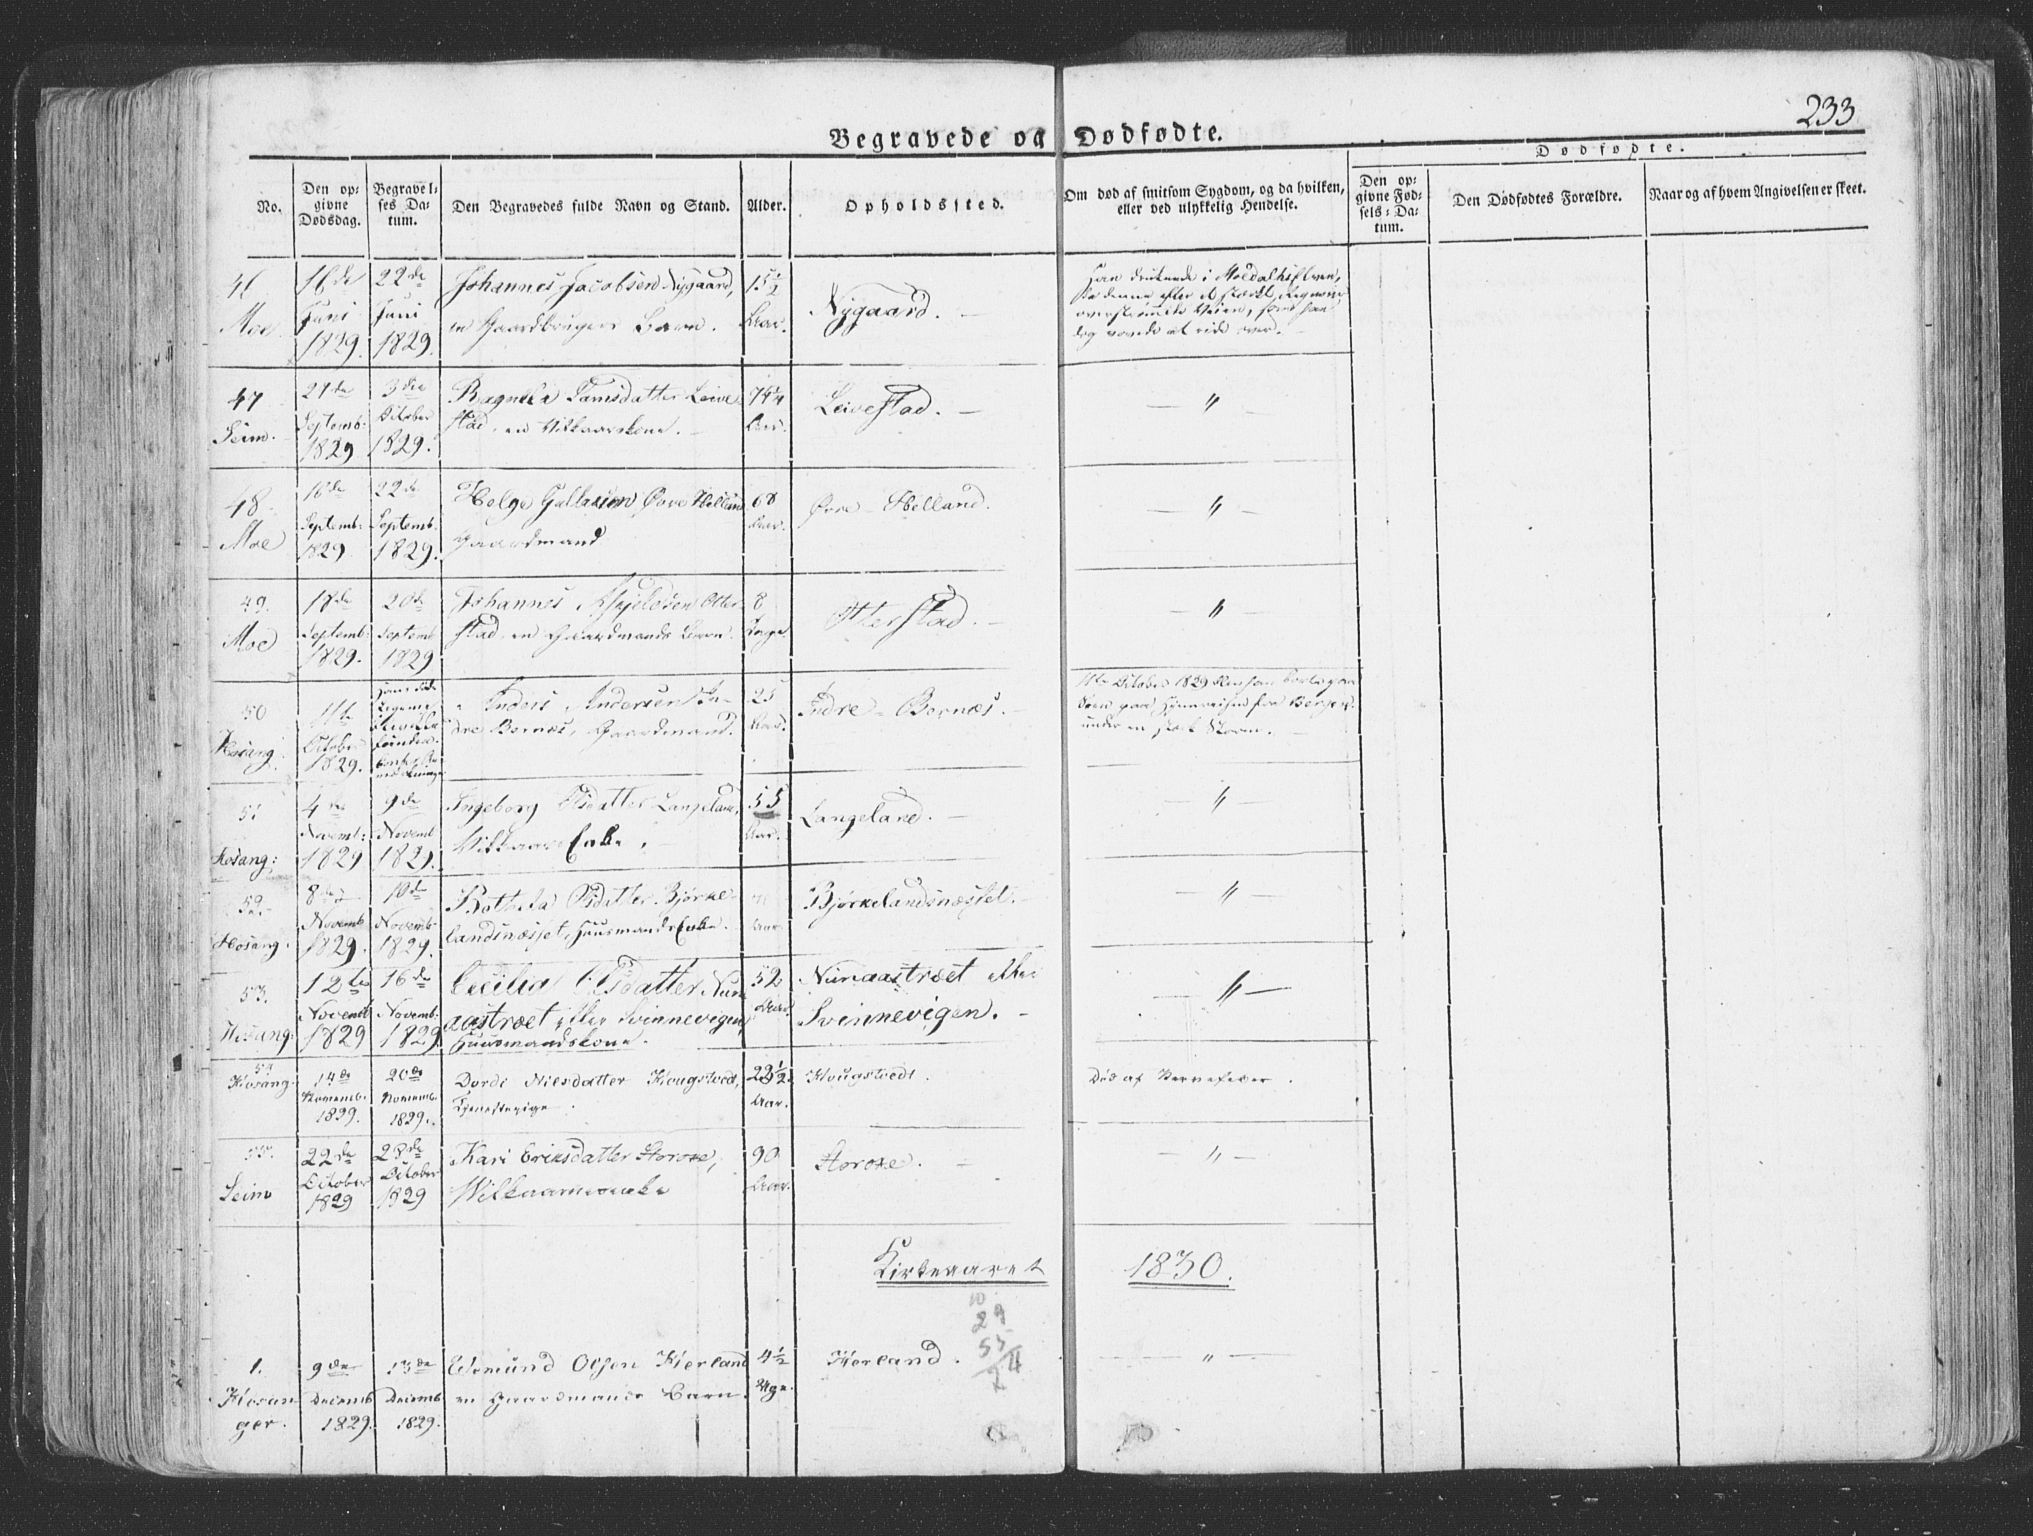 233
Begravede og Dødfødte.
Dødfødte.
No.
Den op-
givne
Dødsdag.
Begravel-
ses Da-
tum.
Den Begravedes fulde Navn og Stand.
Alder.
Opholdssted.
Om død af smitsom Sygdom, og da hvilken,
eller ved ulykkelig Hendelse.
Den op-
givne Fød-
sels-Da-
tum.
Den Dødfødtes Forældre.
Naar og af hvem Angivelsen er skeet.
46
Moe
16de
Juni
1829.
22de
Juni
1829.
Johannes Jacobsen Nygaard,
en Gaardbrugers Barn.
15½
Aar.
Nygaard.
Han druknede i
denne efter et stærkt
overstrømmede Veien, som han
dog vovede at ride over.
47
Seim.
Septemb:
1829
3die
October
1829.
Ragnilla Leive-
stad, en Vilkaarskone.
Aar.
Leivestad.
"
48
Moe
16de
Septemb:
1829.
22de
Septemb.
1829.
Helge Øvre Helland
Gaardmand
68
Aar.
Øvre-Helland.
"
49.
Moe
18de
Septemb:
1829.
20de
Septemb
1829
Johannes Otter-
stad, en Gaardmands Barn.
8
Otterstad.
"
50
Hosang:
October
1829.
Anders Andersen In-
dre Bornæs, Gaardmand.
25
Aar.
Indre-Bornæs.
October 1829
paa Hjemreisen fra Bergen
under en stærk Storm.
51
Hosang:
4de
Novemb:
1829
9de
Novemb
1829.
Ingeborg Langeland,
Vilkaars Enke.
55
Aar.
Langeland.
"
52.
Hosang.
8de
Novemb
1829.
10de
Novemb.
1829.
Bothila Bjørke-
landsnæsset, Huusmands Enke.
Aar.
Bjørkelandsnæsset.
"
53.
Hosang:
12te
Novemb
1829
16de
Novemb.
1829.
Cecilia Olsdatter Nun-
aastræet eller Svinnevigen,
Huusmandskone.
52
Aar.
Nunaastræet eller
Svinnevigen.
"
54
Hosang.
14de
Novemb.
1829.
20de
Novemb.
1829.
Dordi Nilsdatter Hougstvedt,
Tjenestepige.
23½
Aar.
Hougstvedt.
Død af Nervefeber.
55.
Seim
22de
October
1829
28de
October
1829
Kari Eriksdatter Storoxe,
90
Aar.
Storoxe.
"
Kirkeaaret 1830.
10
29
55
1.
Hosan-
ger.
9de
Decemb
1829.
13de
Decemb
1829.
Edmund Olsen Herland
en Gaardmands Barn.
4½
Uge.
Herland.
"